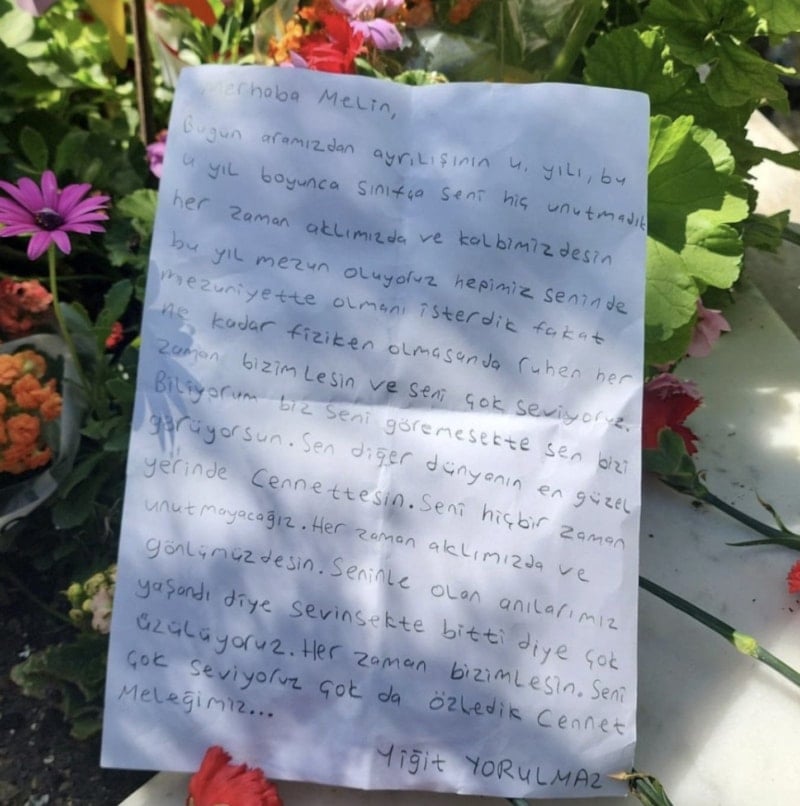 Merhaba Melin,
Bugün aramızdan ayrılışının 4. yılı, bu
4 yıl boyunca sınıfça seni hiç unutmadık
her zaman aklımızda ve kalbimizdesin
bu yıl mezun oluyoruz hepimiz seninde
mezuniyette olmanı isterdik fakat
ne kadar fiziken olmasanda ruhen her
zaman bizimlesin ve seni çok seviyoruz.
Biliyorum biz seni göremesekte sen bizi
görüyorsun. Sen diğer dünyanın en güzel
yerinde Cennettesin. Seni hiçbir zaman
unutmayacağız. Her zaman aklımızda ve
gönlümüzdesin. Seninle olan anılarımız
yaşandı diye sevinsekte bitti diye çok
üzülüyoruz. Her zaman bizimlesin. Seni
çok seviyoruz çok da özledik Cennet
Meleğimiz...
Yiğit YORULMAZ